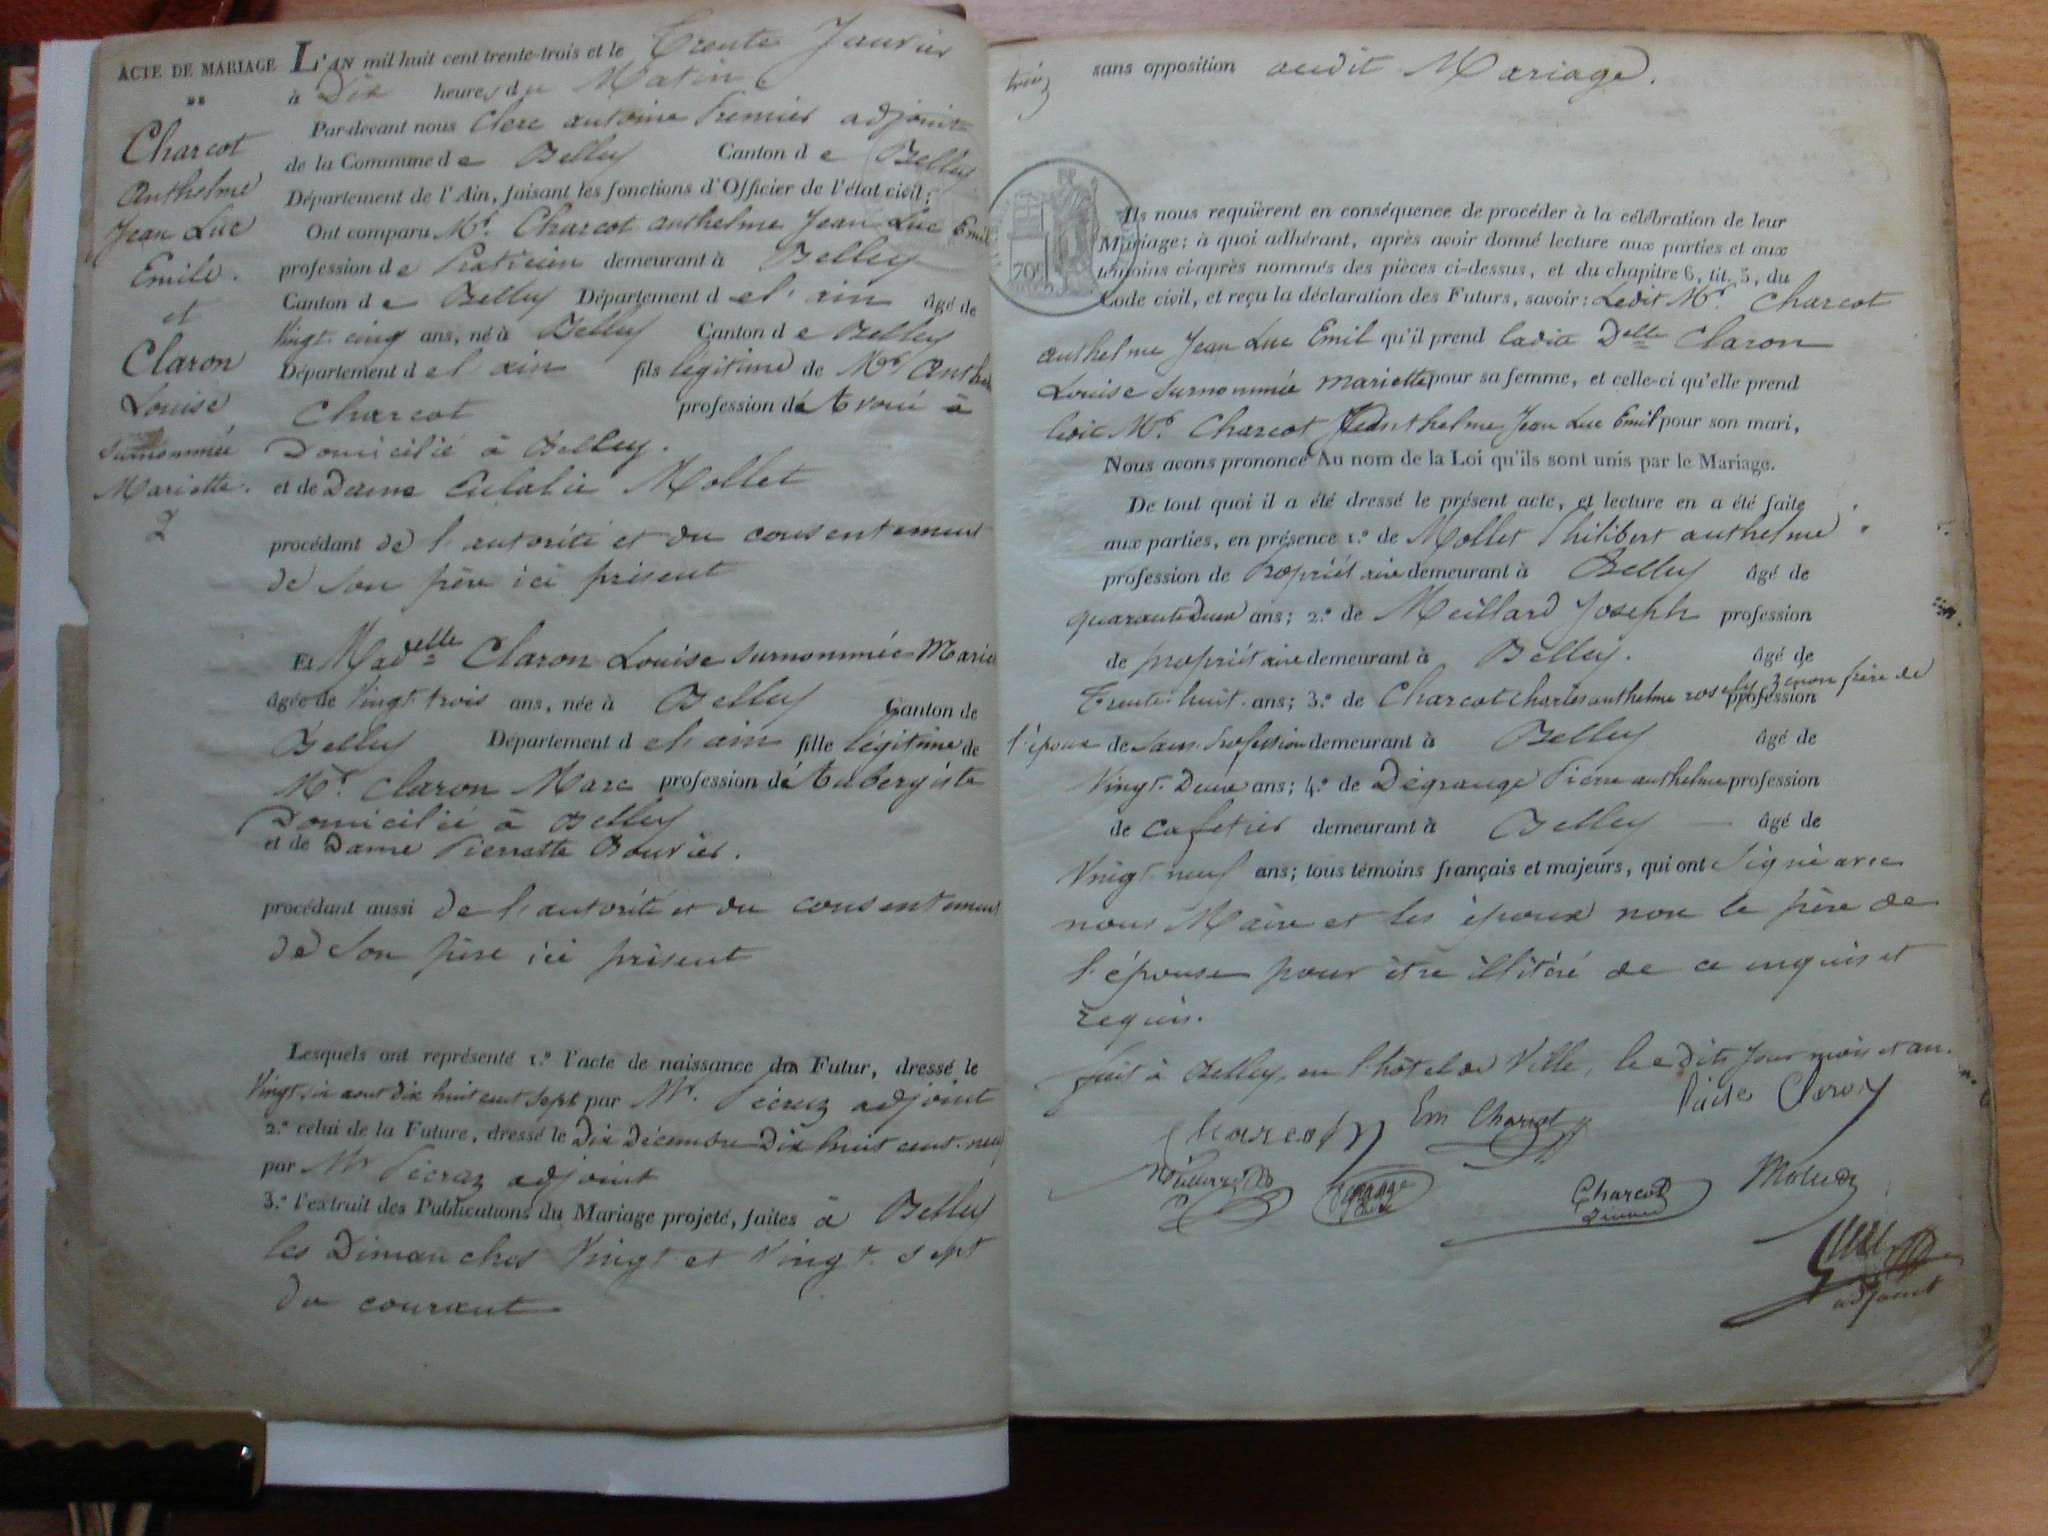 ACTE DE MARIAGE
Charcot
Anthelme
Jean Luc
Emile.
et
Claron
Louise
surnommée
Mariette.
2
L'AN mil huit cent trente-trois et le Trente Janvier
à Dix heures du Matin
Par-devant nous Clerc antoine Premier adjoint
de la Commune de Belley Canton de Belley
Département de l'Ain, faisant les fonctions d'Officier de l'état civil;
Ont comparu Mr. Charcot anthelme Jean Luc Emil
profession de Praticien demeurant à Belley
Canton de Belley Département de l'ain âgé de
Vingt cinq ans, né à Belley Canton de Belley
Département de l'ain fils légitime de Mr. Anthel
Charcot profession d'Avoué à
Domicilié à Belley.
et de Dame Eulalie Mollet
procédant de l'autorité et du consentement
de son père ici présent
Et Madelle Claron Louise surnommée Marie
âgée de Vingt trois ans, née à Belley Canton de
Belley Département de l'ain fille légitime de
Mr. Claron Marc profession d'Aubergiste
Domicilié à Belley
et de Dame Pierrette Bouvier.
procédant aussi de l'autorité et du consentement
de Son père ici présent
Lesquels ont représenté 1.º l'acte de naissance du Futur, dressé le
Vingt six aout dix huit cent sept par Mr. Pécraz adjoint
2.º celui de la Future, dressé le Dix Décembre Dix huit cent neuf
par Mr Pécraz adjoint
3.º l'extrait des Publications du Mariage projeté, faites à Belley
les Dimanches Vingt et Vingt sept
du courant
trois
sans opposition audit Mariage.
70c
Ils nous requièrent en conséquence de procéder à la célébration de leur
Mariage; à quoi adhérant, après avoir donné lecture aux parties et aux
témoins ci-après nommés des pièces ci-dessus, et du chapitre 6, tit. 5, du
Code civil, et reçu la déclaration des Futurs, savoir: Ledit Mr. Charcot
anthelme Jean Luc Emil qu'il prend ladite Delle Claron
Louise surnommée mariette pour sa femme, et celle-ci qu'elle prend
ledit Mr. Charcot Anthelme Jean Luc Emil pour son mari,
Nous avons prononcé Au nom de la Loi qu'ils sont unis par le Mariage.
De tout quoi il a été dressé le présent acte, et lecture en a été faite
aux parties, en présence 1.º de Mollet Philibert anthelme
profession de Propriétaire demeurant à Belley âgé de
quarante Deux ans; 2.º de Meillard Joseph profession
de propriétaire demeurant à Belley. âgé de
Trente huit ans; 3.º de Charcot Charles anthelme frère de profession
l'époux de Sans Profession demeurant à Belley âgé de
Vingt Deux ans; 4.º de Dégrange Pierre anthelme profession
de cafetier demeurant à Belley âgé de
Vingt neuf ans; tous témoins français et majeurs, qui ont Signé avec
nous Maire et les époux non le père de
l'épouse pour être illitéré de ce enquis et
requis.
fait à Belley, en l'hôtel de Ville, les dits jour mois et an.
Charcot Em Charcot Claron
Charcot
adjoint